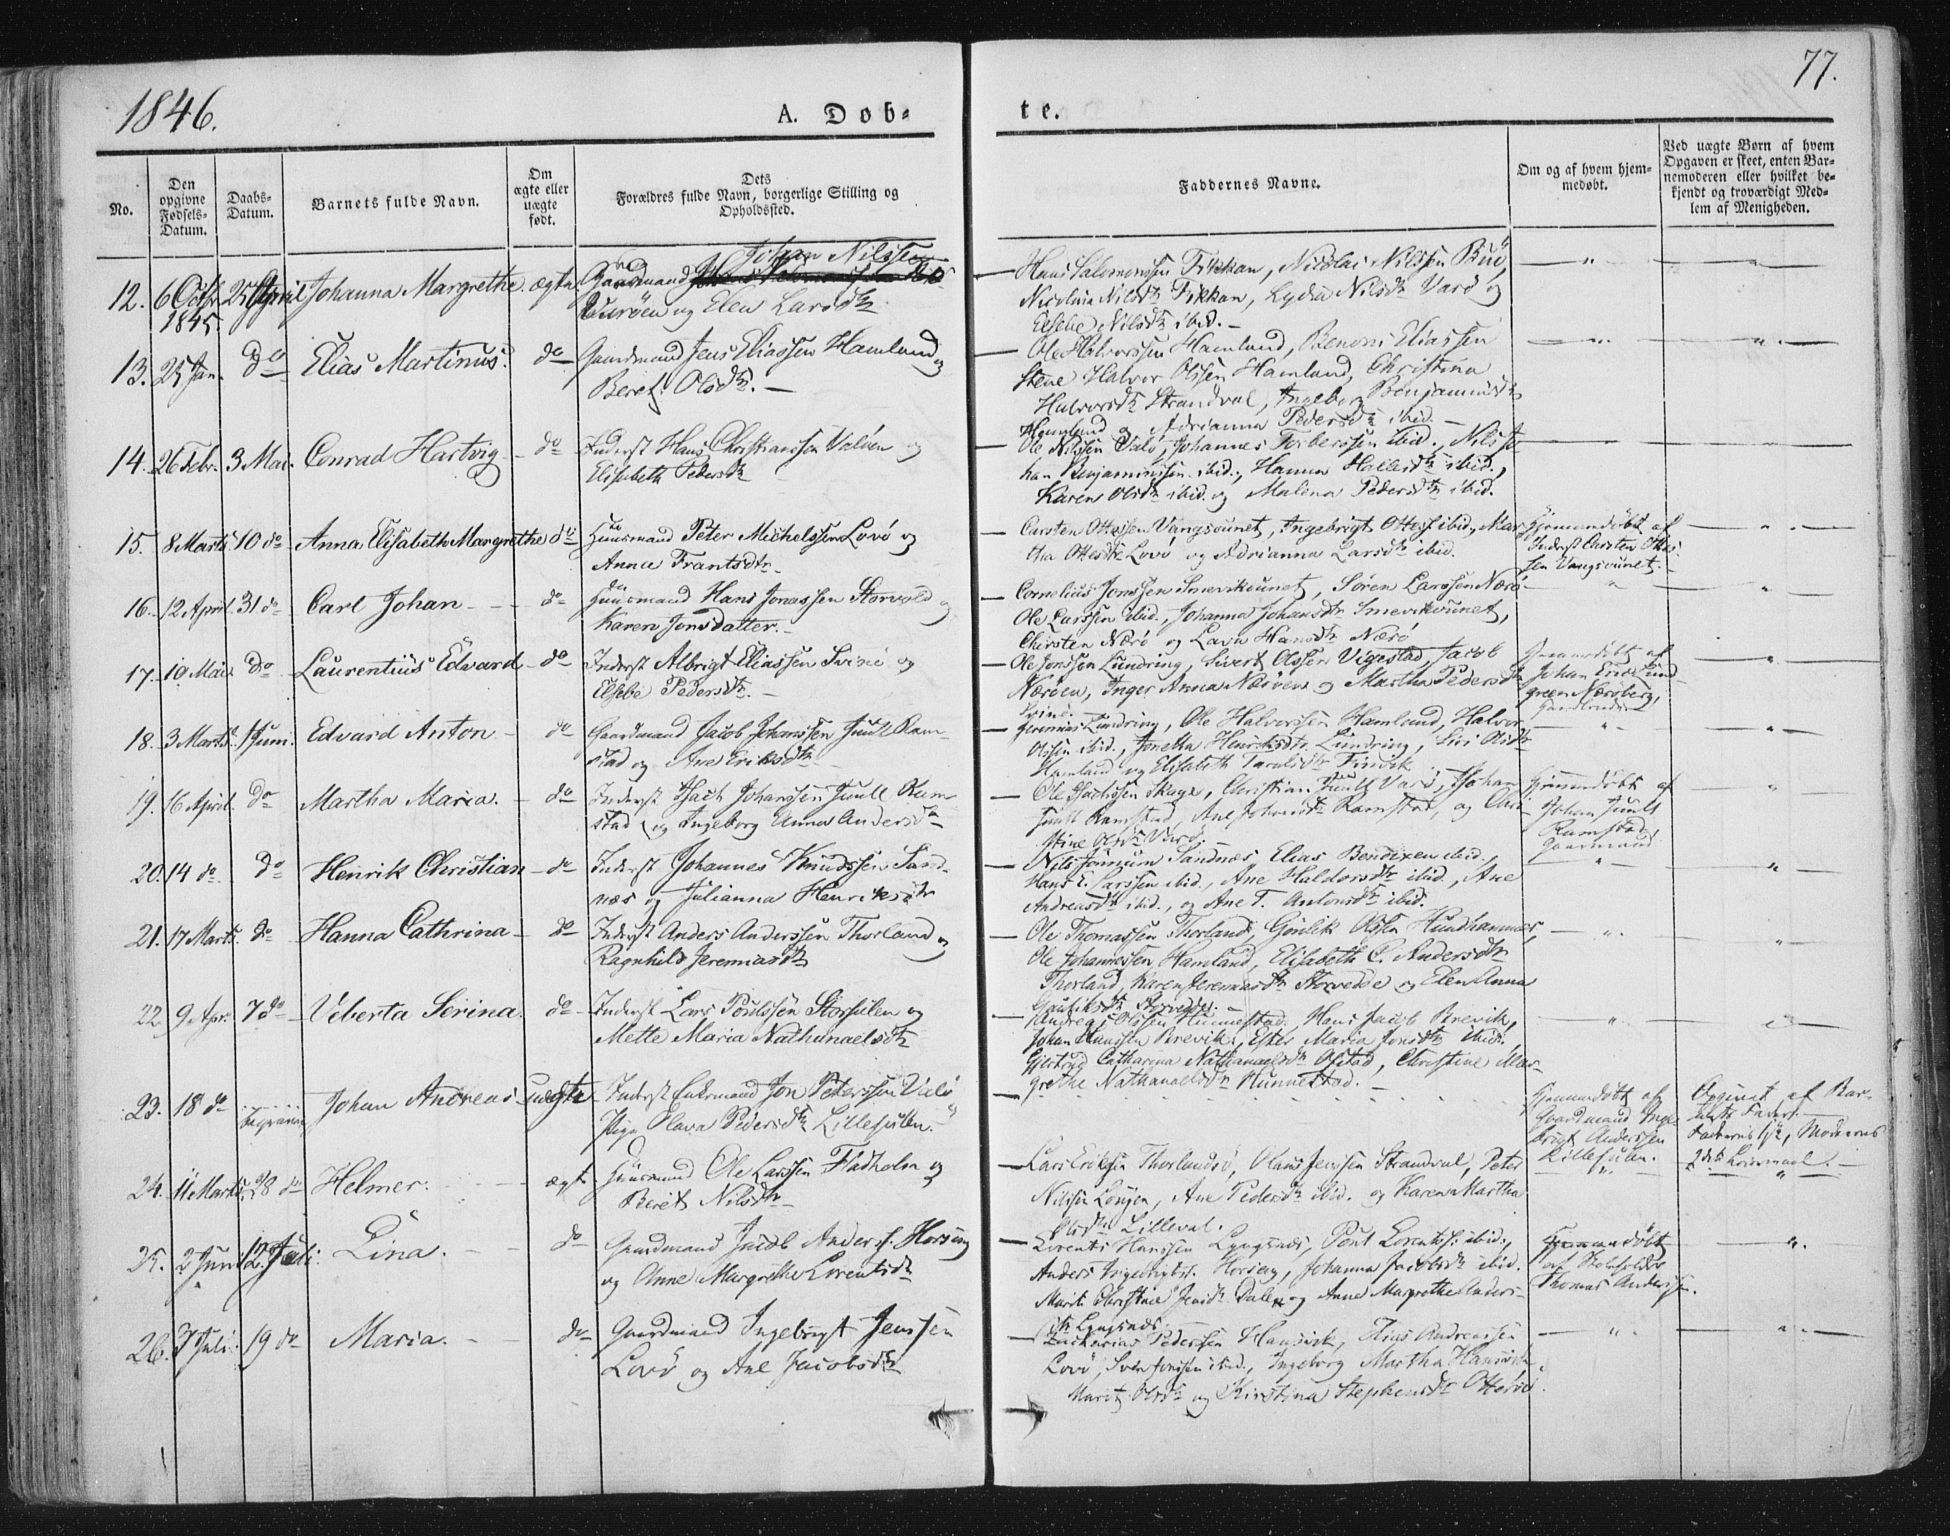 77.
1846.
A. Dob-
te.
No.
Den opgivne Fødsels-Datum.
Daabs-Datum.
Barnets fulde Navn.
Om ægte eller uægte født.
Dets Forældres fulde Navn, borgerlige Stilling og Opholdsted.
Faddernes Navne.
Om og af hvem hjem-medøbt.
Ved uægte Børn af hvem Opgaven er skeet, enten Bar-nemoderen eller hvilket be-kjendt og troværdigt Med-lem af Menigheden.
Johan Nilssen
12. 6 Octbr 1845. 25 April Johanna Margrethe. ægte Gaardmand
og Elen Larsdtr
Hans Salomonssen Fikkan, Nicolai Nilssen
Nicolina Nilsdtr Fikkan, Lydia Nilsdtr Varø og
Elsebe Nilsdtr ibid. -
13. 25 Jan. do Elias Martinus. do Gaardmand Jens Eliassen Hamland og
Beret Olsdtr. -
Ole Halvorssen Hamland, Benoni Eliassen
Stene Halvor Olssen Hamland, Christina
Halvorsdtr Strandval, Ingebor Benjaminsdtr
Hamland og Adrianna Pedersdtr ibid. -
14. 26 Febr. 3 Mai. Conrad Hartvig - do Inderst Hans Christianssen Valøen og
Elisabeth Pedersdtr
Ole Nilssen Valø, Johannes Torberssen ibid., Nils Jo-
han Benjaminssen ibid., Hanna Hallesdtr ibid.,
Karen Olsdtr ibid. og Malena Pedersdtr ibid.
15. 8 Marts 10 do Anna Elisabeth Margrethe do Huusmand Peter Michelssen Lovø og
Anna Frantsdtr.
Carsten Ottessen Vangsounet, Ingebrigt Ottess. ibid., Mar-
tha Ottesdtr Lovø og Adrianna Larsdtr ibid.
Hjemmedøbt af
Inderst Carsten Ottes-
sen Vangsounet. -
16. 12 April. 31 do Carl Johan - do Huusmand Hans Jonassen Storvold og
Karen Jonsdatter. -
Cornelius Jonssen Smevikounet, Søren Larssen Nærø
Ole Larssen ibid., Johanna Johansdtr Smevikounet,
Chirsten Nærø og Lava Hansdtr Nærø
17. 10 Mai. do Laurentius Edvard - do Inderst Albrigt Eliassen Svinø og
Elsebe Pedersdtr. -
Ole Jonssen Lundring, Sivert Olssen Vigestad, Jacob
Nærøen, Inger Anna Nærøen og Martha Pedersdtr
Svinø.
Hjemmedøbt af
Johan Eric Lund-
green Nærøberg,
18. 3 Marts. 1 Juni. Edvard Anton - do Gaardmand Jacob Johanssen Juul Ram-
stad og Ane Eriksdtr
Jeremias Lundring, Ole Halvorssen Hamland, Halvor
Olssen ibid., Jonetta Henriksdtr. Lundring, Siri Olsdtr
Hamland og Elisabeth
19. 16 April. do Martha Maria. - do Inderst Isach Johanssen Juull Ram-
stad og Ingeborg Anna Andersdtr
Ole Isachssen Skage, Christian Juull Varø, Johan
Juull Ramstad, Ane Johansdtr Ramstad, og
Stine Olsdtr Varø.
Hjemmedøbt af
Johan Juull
Ramstad,
Gaardmand
20. 14 do. do Henrik Christian - do Inderst Johannes Knudssen Sand-
næs og Julianna Henriksdtr
Nils Jønnum Sandnæs, Elias Bendixen ibid.,
Hans E. Larssen ibid., Ane Haldorsdtr ibid., Ane
Andreasdtr ibid., og Ane T. Antonsdtr ibid.
21. 17 Marts. do Hanna Cathrina - do Inderst Anders Anderssen Thorland og
Ragnhild Jeremiasdtr
Ole Thomassen Thorland, Gunlik Olssen Hundhammer,
Ole Johannessen Hamland, Elisabeth C. Andersdtr
Thorland, Karen Jeremiasdtr Storvedde og Elen Anna
Gunliksdtr Storvedde. -
22 9 Apr. 7 do Veberta Serina. do Inderst Lars Poulssen Storsulen og
Mette Maria Nathanaelsdtr
Andreas Olssen Hunnestad, Hans Jacob Brevik,
Johan Hanssen Brevik, Ester Maria Jonsdtr ibid.,
Gjertrud Catharina Nathanaelsdtr Ofstad, Christine Mar-
grethe Nathanaelsdtr Hunnestad. -
23. 18 do Johan Andreas uægte Inderst Enkemand Jon Peterssen Valø
Pige Olava Pedersdtr Lillesulen.
Hjemmedøbt af
Gaardmand Inge-
brigt Anderssen
Lillesulen.
Opgivet af Bar-
nets Fader.
Faderens 1ste, Moderens
2det Leiermaal. -
24. 11 Marts. 28 do Helmer. ægte Huusmand Ole Larssen Fladholm og
Berit Nilsdtr
Lars Erikssen Thorlandsø, Olaus Jenssen Strandval, Peter
Nilssen Løngen, Ane Pedersdtr ibid. og Karen Martha
Olsdtr Lilleval.
25. 2 Juni 12 Juli. Lina. - do Gaardmand Jacob Anderss. Horseng
og Anne Margrethe Lorentsdtr
Lorents Hanssen Lyngsnæs, Pent Lorentss. ibid.,
Anders Ingebrigtss. Horseng, Johanna Jacobsdtr ibid.
Marit Christine Jensdtr Dale og Anne Margrethe Anders-
dtr Lyngsnæs.
Hjemmedøbt
af Skoleholder
Thomas Anderssen.
26. 7 Juli. 19 do Maria. - do Gaardmand Ingebrigt Jenssen
Lovø og Ane Jacobsdtr
Zacharias Pederssen Hansvik, Elias Andreassen
Lovø, Sven Jonssen ibid., Ingeborg Martha Hansdtr
Marit Olsdtr og Kirstina Stephensdtr Otterø.